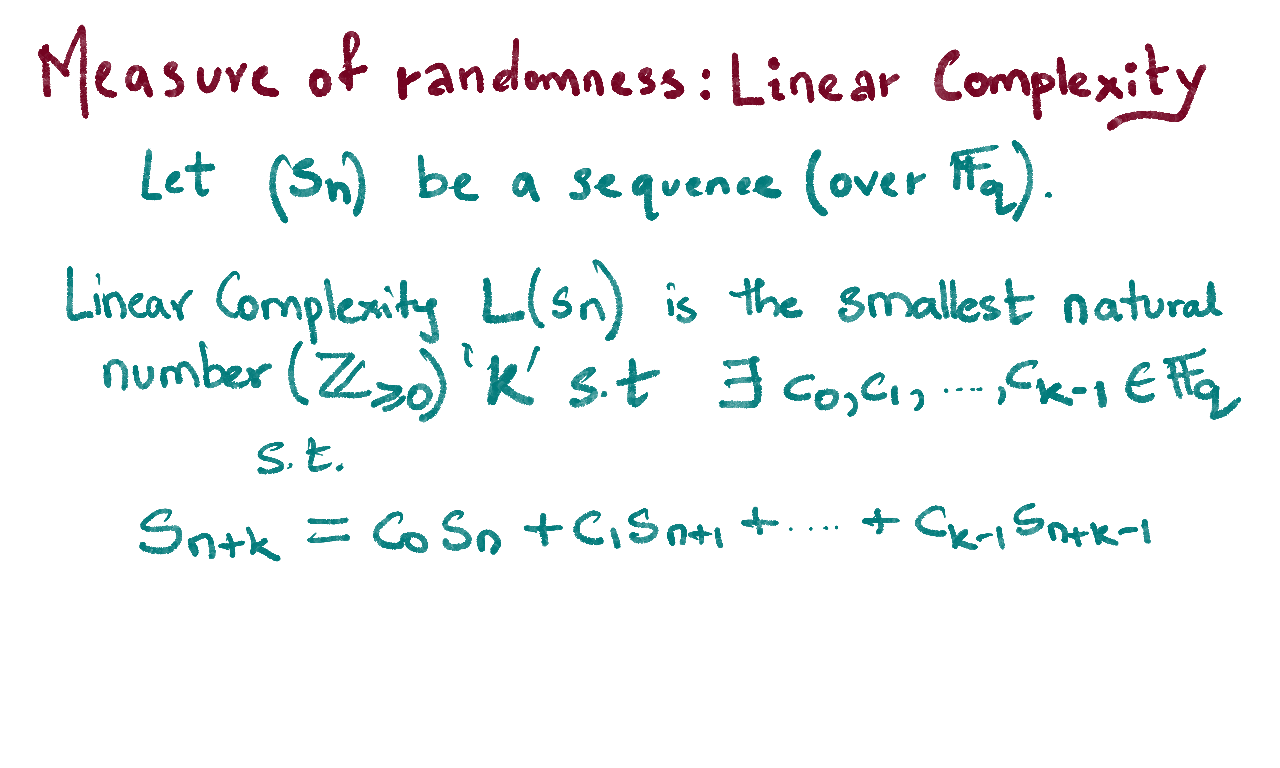 Measure of randomness: Linear Complexity
Let (Sn) be a sequence (over 𝔽q).
Linear Complexity L(Sn) is the smallest natural
number (ℤ≥0) 'K' s.t ∃ c₀,c₁, ....,cₖ₋₁ ∈ 𝔽q
s.t.
Sₙ₊ₖ = C₀Sₙ + C₁Sₙ₊₁ + .... + Cₖ₋₁Sₙ₊ₖ₋₁